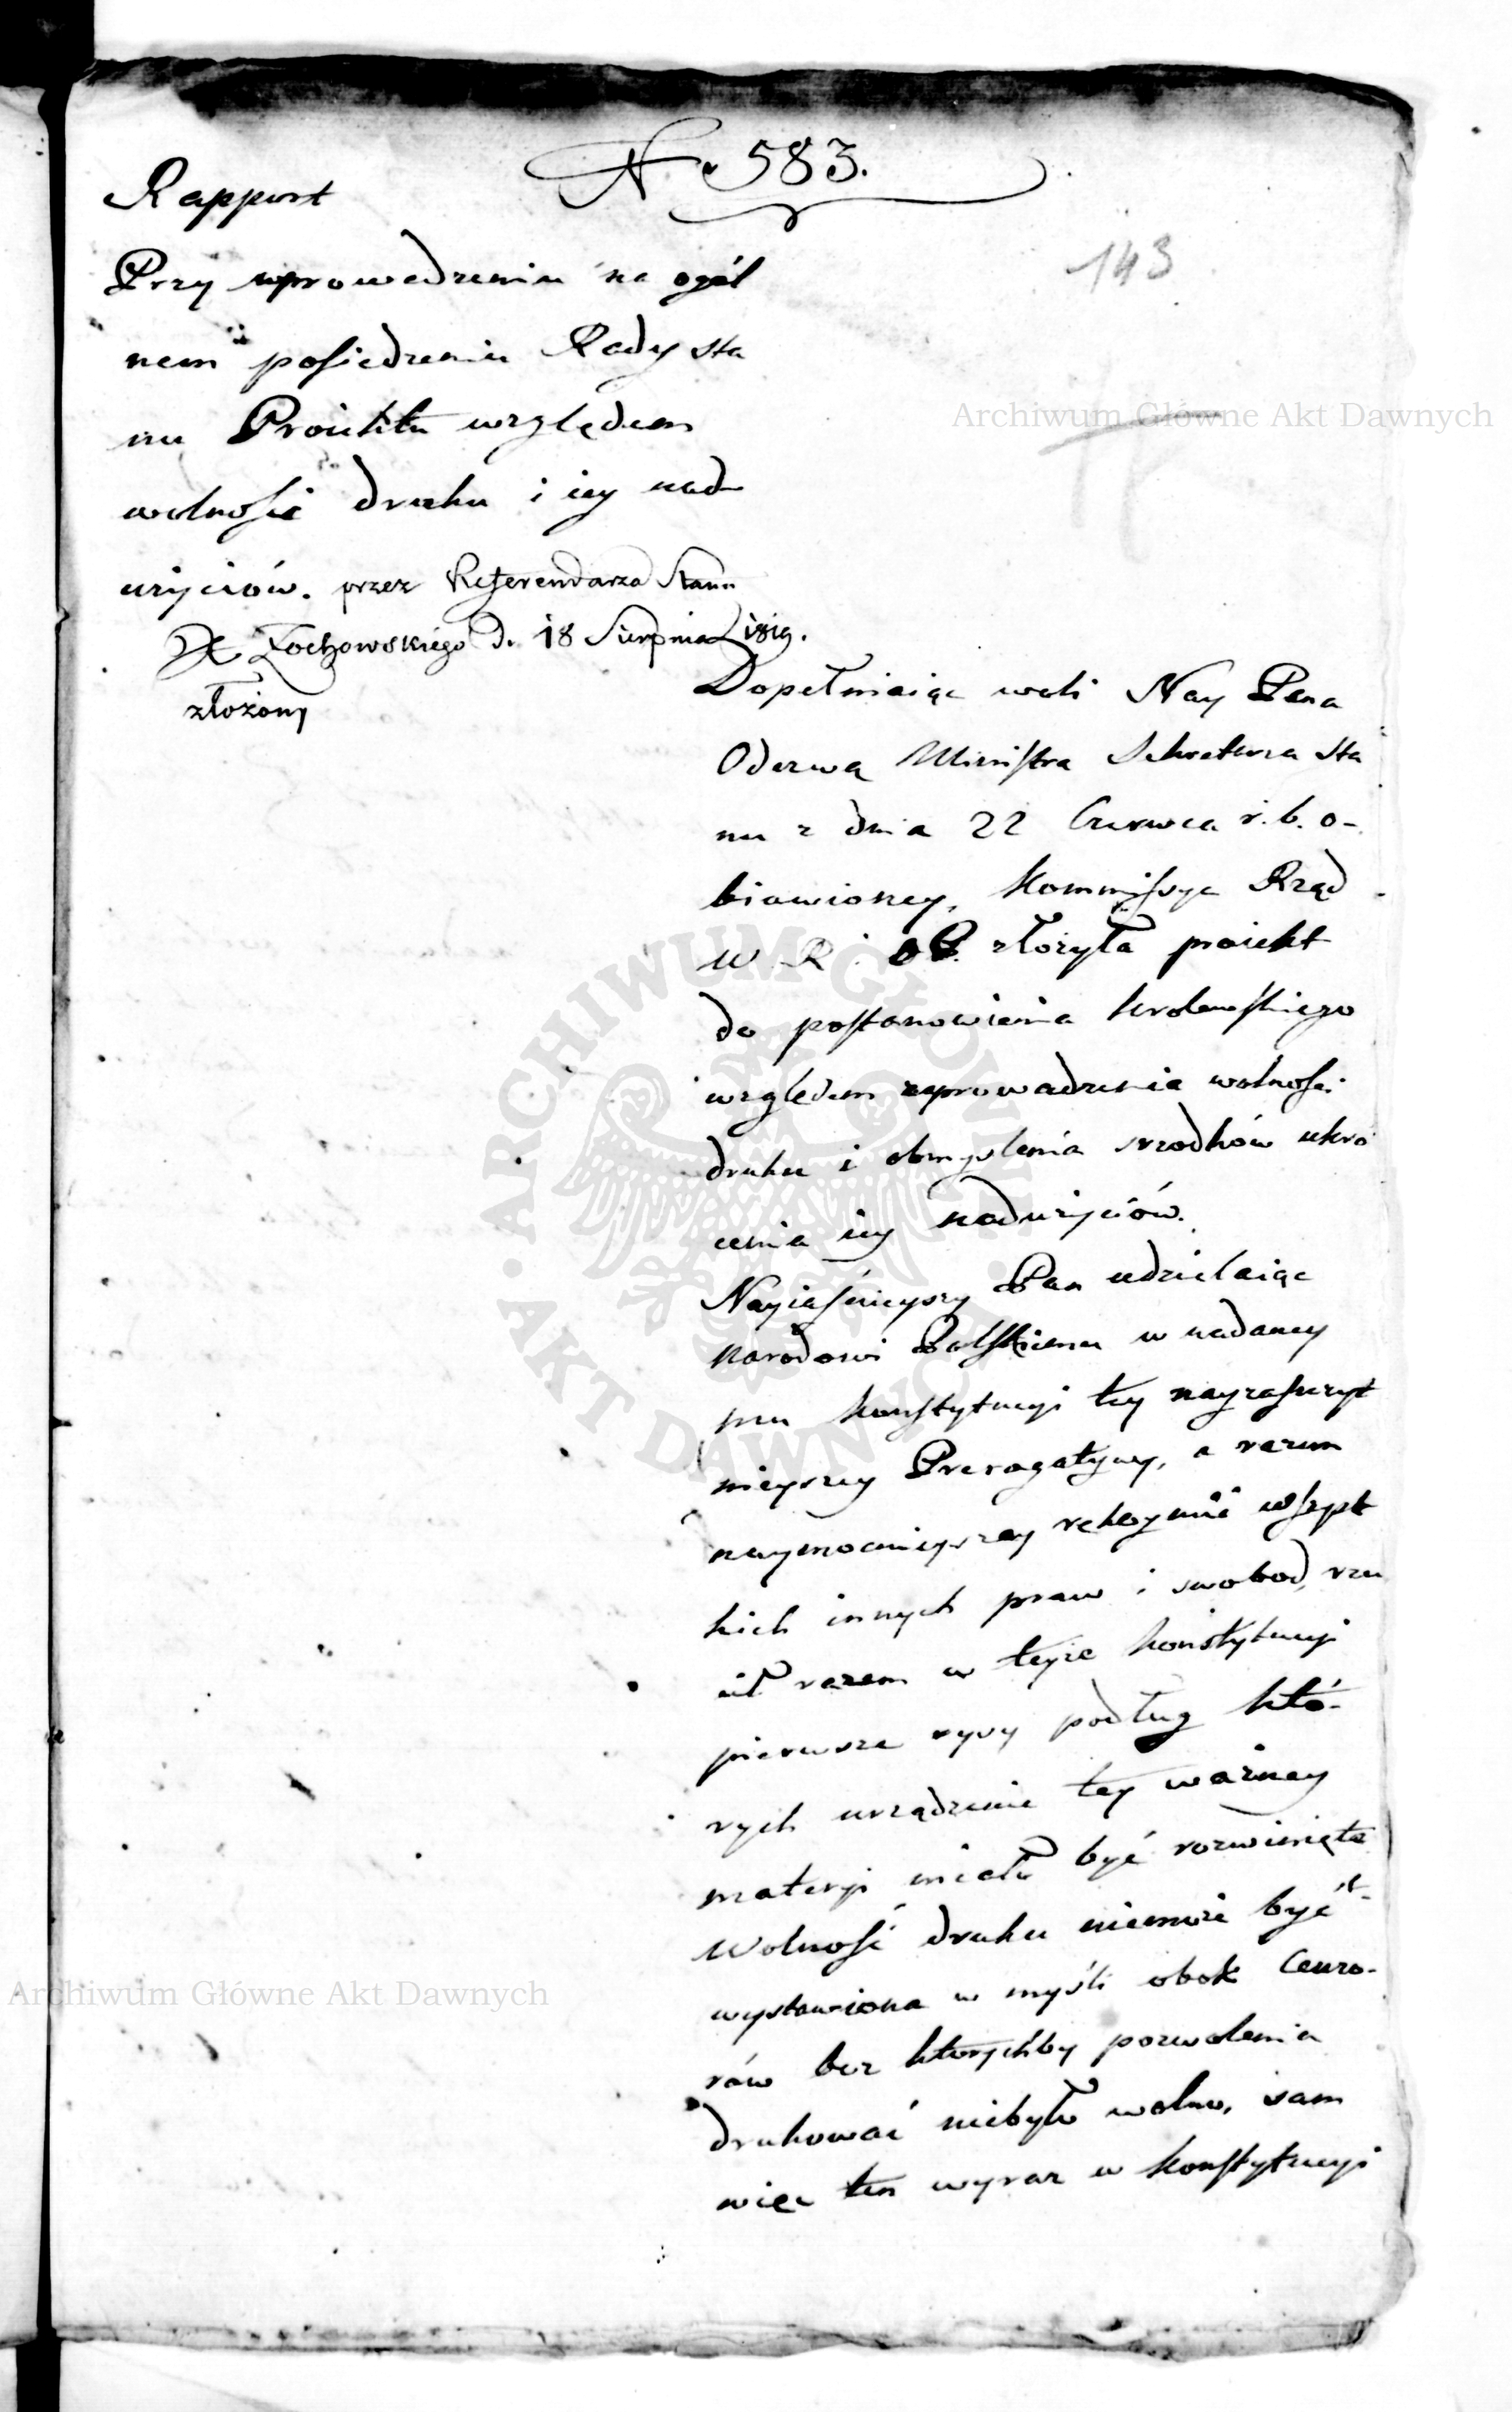 № 583.
143
Rapport
Przy wprowadzeniu na ogól
nem posiedzeniu Rady Sta
nu Proiektu względem
wolności druku i iey nad
użyciów. przez Referendarza Stanu
Żochowskiego d. 18 Sierpnia 1819.
złożony
Dopełniaiąc woli Nay Pana
Odezwą Ministra Sekretarza Sta
nu z dnia 22 Czerwca r. b. o-
biawioney, Kommissya Rząd
W. R. i O. P. złożyła proiekt
do postanowienia Krolewskiego
względem wprowadzenia wolności
druku i obmyslenia srzodków ukró
cenia iey nadużyciów.
Nayiaśnieyszy Pan udzielaiąc
Narodowi Polskiemu w nadaney
mu Konstytucyi tey nayzaszczyt
nieyszey Prerogatywy, a razem
naymocnieyszey rękoymii wszyst
kich innych praw i swobod, rzu
cił razem w teyże Konstytucyi
pierwsze rysy podług któ-
rych urządzenie tey ważney
materyi miało być rozwinięte
Wolność druku niemoże być
wystawiona w myśli obok Cenzo-
rów bez którychby pozwolenia
drukować niebyło wolno, sam
więc ten wyraz w Konstytucyi
Archiwum Główne Akt Dawnych
Archiwum Główne Akt Dawnych
ARCHIWUM GŁÓWNE
AKT DAWNYCH